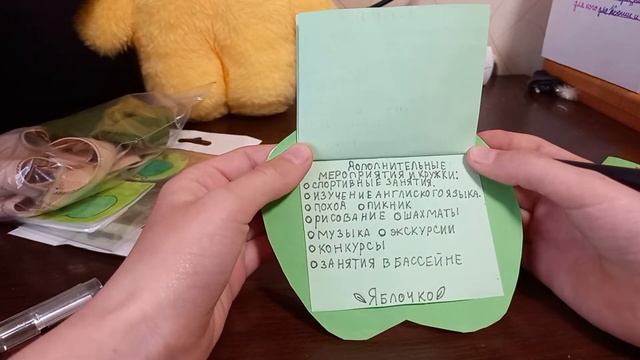 ДОПОЛНИТЕЛЬНЫЕ
МЕРОПРИЯТИЯ И КРУЖКИ:
СПОРТИВНЫЕ ЗАНЯТИЯ.
ИЗУЧЕНИЕ АНГЛИСКОГО ЯЗЫКА.
ПОХОД ПИКНИК
РИСОВАНИЕ ШАХМАТЫ
МУЗЫКА ЭКСКУРСИИ
КОНКУРСЫ
ЗАНЯТИЯ В БАССЕЙНЕ
ЯБЛОЧКО